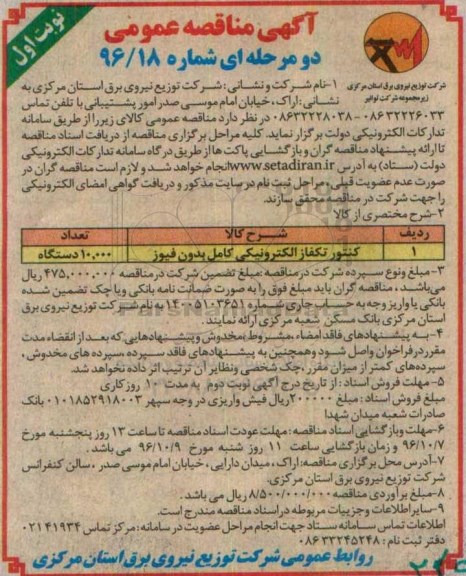 نوبت اول
آگهی مناقصه عمومی
دو مرحله ای شماره ۹۶/۱۸
شرکت توزیع نیروی برق استان مرکزی
زیرمجموعه شرکت توانیر
۱-نام شرکت و نشانی : شرکت توزیع نیروی برق استان مرکزی به
نشانی : اراک ، خیابان امام موسی صدر امور پشتیبانی با تلفن تماس
۰۸۶۳۲۲۲۸۰۳۸-۰۸۶۳۲۲۲۶۰۳۳ در نظر دارد مناقصه عمومی کالای زیر را از طریق سامانه
تدارکات الکترونیکی دولت برگزار نماید. کلیه مراحل برگزاری مناقصه از دریافت اسناد مناقصه
تا ارائه پیشنهاد مناقصه گران و بازگشایی پاکت ها از طریق درگاه سامانه تدارکات الکترونیکی
دولت (ستاد) به آدرس www.setadiran.ir انجام خواهد شد و لازم است مناقصه گران در
صورت عدم عضویت قبلی ، مراحل ثبت نام در سایت مذکور و دریافت گواهی امضای الکترونیکی
را جهت شرکت در مناقصه محقق سازند.
۲-شرح مختصری از کالا
ردیف شرح کالا تعداد
۱ کنتور تکفاز الکترونیکی کامل بدون فیوز ۱۰,۰۰۰ دستگاه
۳-مبلغ ونوع سپرده شرکت در مناقصه :مبلغ تضمین شرکت در مناقصه ۴۷۵,۰۰۰,۰۰۰ ریال
می باشد ، مناقصه گران باید مبلغ فوق را به صورت ضمانت نامه بانکی ویا چک تضمین شده
بانکی یا واریز وجه به حساب جاری شماره ۱۴۰۰۵۱۰۳۶۵۱ به نام شرکت توزیع نیروی برق
استان مرکزی بانک مسکن شعبه مرکزی ارائه نمایند.
۴-به پیشنهادهای فاقد امضاء ،مشروط ،مخدوش وپیشنهادهایی که بعد از انقضاء مدت
مقرر در فراخوان واصل شود وهمچنین به پیشنهادهای فاقد سپرده ،سپرده های مخدوش ،
سپرده‌های کمتر از میزان مقرر ،چک شخصی ونظایر آن ترتیب اثر داده نخواهد شد.
۵- مهلت فروش اسناد : از تاریخ درج آگهی نوبت دوم به مدت ۱۰ روز کاری
مبلغ فروش اسناد : مبلغ ۲۰۰۰۰۰ ریال فیش واریزی در وجه سپهر ۰۱۰۱۸۵۲۹۱۸۰۰۳ بانک
صادرات شعبه میدان شهدا
۶-مهلت وبازگشایی اسناد مناقصه : مهلت عودت اسناد مناقصه تا ساعت ۱۳ روز پنجشنبه مورخ
۹۶/۱۰/۷ و زمان بازگشایی ساعت ۱۱ روز شنبه مورخ ۹۶/۱۰/۹ می باشد .
۷-آدرس محل برگزاری مناقصه:اراک ، میدان دارایی ، خیابان امام موسی صدر ، سالن کنفرانس
شرکت توزیع نیروی برق استان مرکزی.
۸-مبلغ برآوردی مناقصه ۸/۵۰۰/۰۰۰/۰۰۰ ریال می باشد .
۹-سایر اطلاعات وجزییات مربوطه در اسناد مناقصه مندرج است.
اطلاعات تماس سامانه ستاد جهت انجام مراحل عضویت در سامانه : مرکز تماس ۰۲۱۴۱۹۳۴
دفتر ثبت نام : ۰۸۶۳۳۲۴۵۲۴۸
روابط عمومی شرکت توزیع نیروی برق استان مرکزی